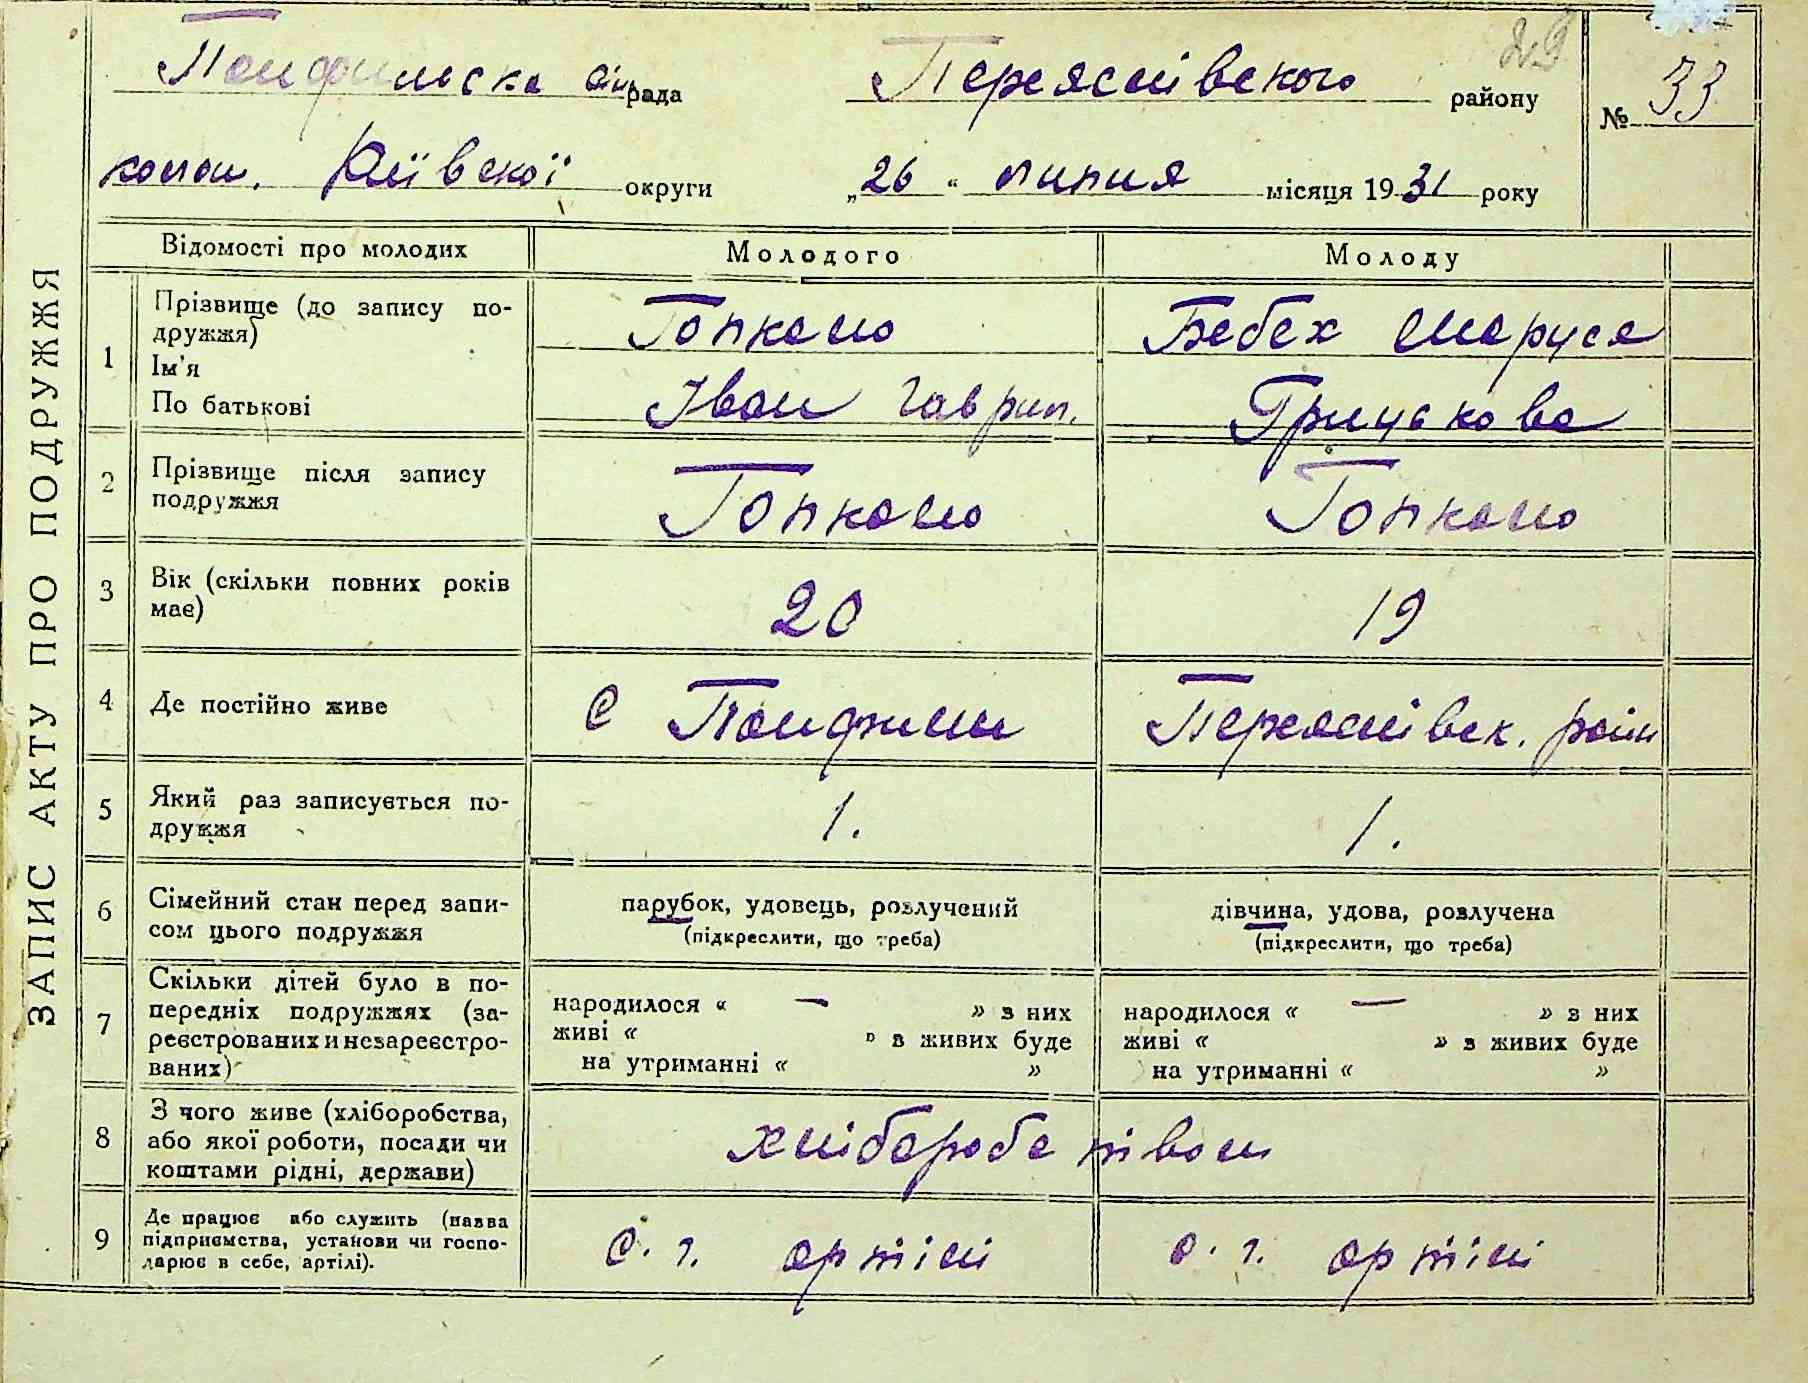 29
Панфильска сіль рада Переяслівского району № 33
колош. Київскої округи „26“ липня місяця 1931 року
ЗАПИС АКТУ ПРО ПОДРУЖЖЯ
Відомості про молодих Молодого Молоду
1 Прізвище (до запису по-
дружжя)
Ім'я
По батькові
Гопкало
Іван Гаврил.
Бебех Маруся
Грицькова
2 Прізвище після запису
подружжя
Гопкало Гопкало
3 Вік (скільки повних років
має)
20 19
4 Де постійно живе с Панфили Переяслівск. райн
5 Який раз записується по-
дружжя
1. 1.
6 Сімейний стан перед запи-
сом цього подружжя
парубок, удовець, розлучений
(підкреслити, що треба)
дівчина, удова, розлучена
(підкреслити, що треба)
7 Скільки дітей було в по-
передніх подружжях (за-
реєстрованих и незареєстро-
ваних)
народилося « — » з них
живі « » з живих буде
на утриманні « »
народилося « — » з них
живі « » з живих буде
на утриманні « »
8 З чого живе (хліборобства,
або якої роботи, посади чи
коштами рідні, держави)
хлібаробствівом
9 Де працює або служить (назва
підприємства, установи чи госпо-
дарює в себе, артілі).
с. г. артіли с. г. артіли